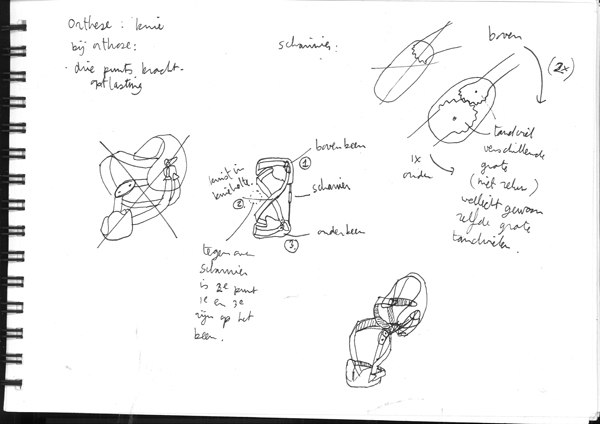 Orthese : knie
bij orthese:
- drie punts kracht-
ontlasting
scharnier:
boven
(2x)
tandwiel
verschillende
grote
(niet zeker)
wellicht gewoon
zelfde grote
tandwielen.
1x
onder
bovenbeen
①
knie in
knieholte.
②
scharnier
onderbeen
③
tegenover
scharnier
is 2e punt
1e en 3e
zijn op het
been.